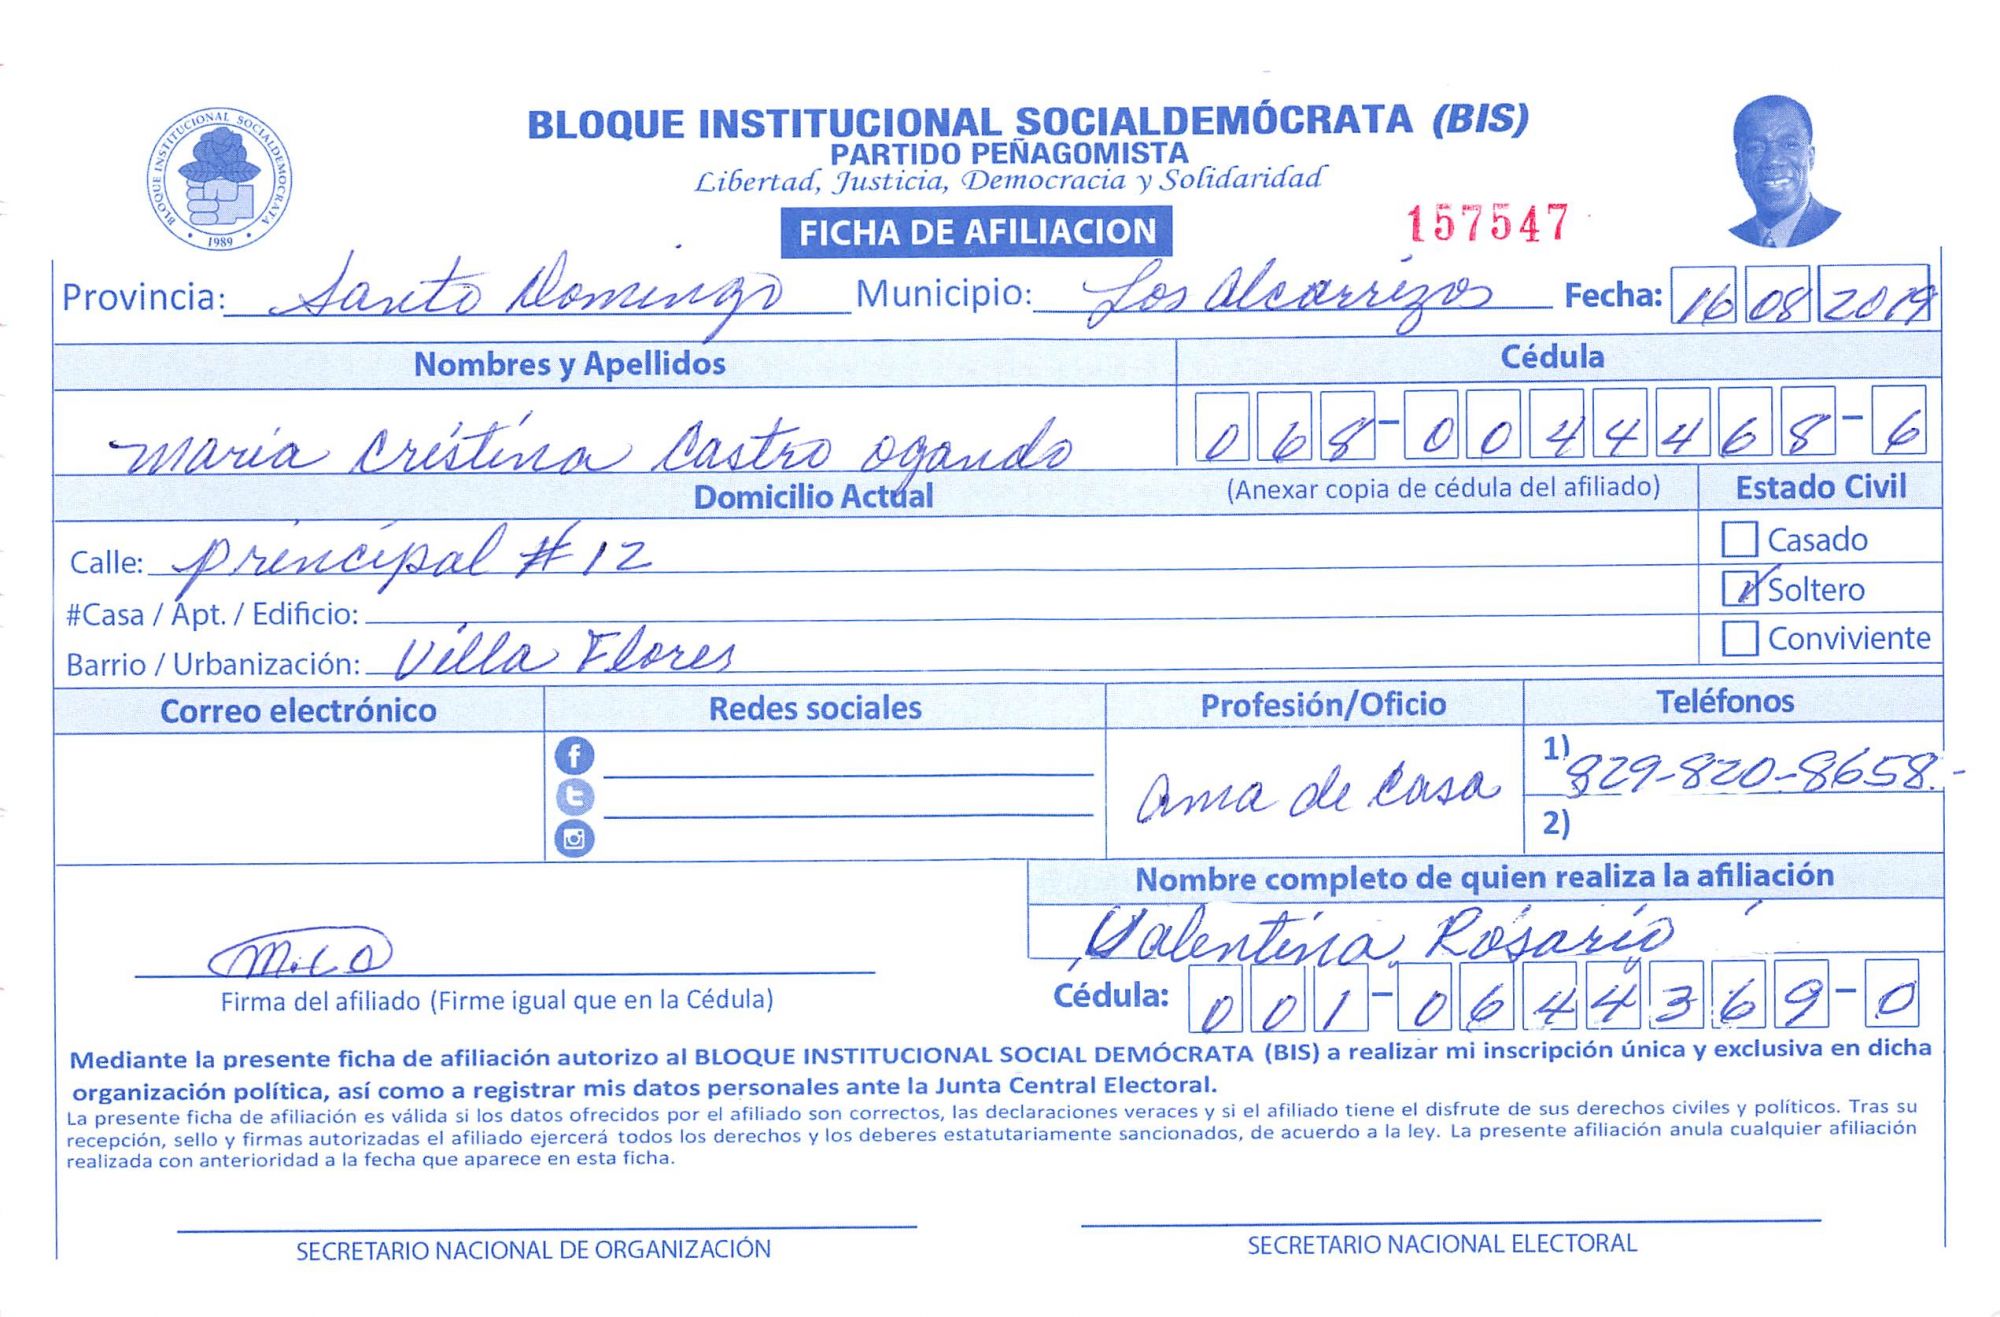 BLOQUE INSTITUCIONAL SOCIALDEMÓCRATA (BIS)
PARTIDO PEÑAGOMISTA
Libertad, Justicia, Democracia y Solidaridad
BLOQUE INSTITUCIONAL SOCIALDEMOCRATA
1989
FICHA DE AFILIACION
157547
Provincia: Santo Domingo Municipio: Los Alcarrizos Fecha: 16 08 2019
Nombres y Apellidos Cédula
Maria Cristina Castro Ogando 068-0044468-6
Domicilio Actual (Anexar copia de cédula del afiliado) Estado Civil
Calle: principal #12 Casado
#Casa / Apt. / Edificio: Soltero
Barrio / Urbanización: Villa Flores Conviviente
Correo electrónico Redes sociales Profesión/Oficio Teléfonos
Ama de Casa 1) 829-820-8658.-
2)
Nombre completo de quien realiza la afiliación
Valentina Rosario
M.C.O
Firma del afiliado (Firme igual que en la Cédula) Cédula: 001-0644369-0
Mediante la presente ficha de afiliación autorizo al BLOQUE INSTITUCIONAL SOCIAL DEMÓCRATA (BIS) a realizar mi inscripción única y exclusiva en dicha
organización política, así como a registrar mis datos personales ante la Junta Central Electoral.
La presente ficha de afiliación es válida si los datos ofrecidos por el afiliado son correctos, las declaraciones veraces y si el afiliado tiene el disfrute de sus derechos civiles y políticos. Tras su
recepción, sello y firmas autorizadas el afiliado ejercerá todos los derechos y los deberes estatutariamente sancionados, de acuerdo a la ley. La presente afiliación anula cualquier afiliación
realizada con anterioridad a la fecha que aparece en esta ficha.
SECRETARIO NACIONAL DE ORGANIZACIÓN SECRETARIO NACIONAL ELECTORAL